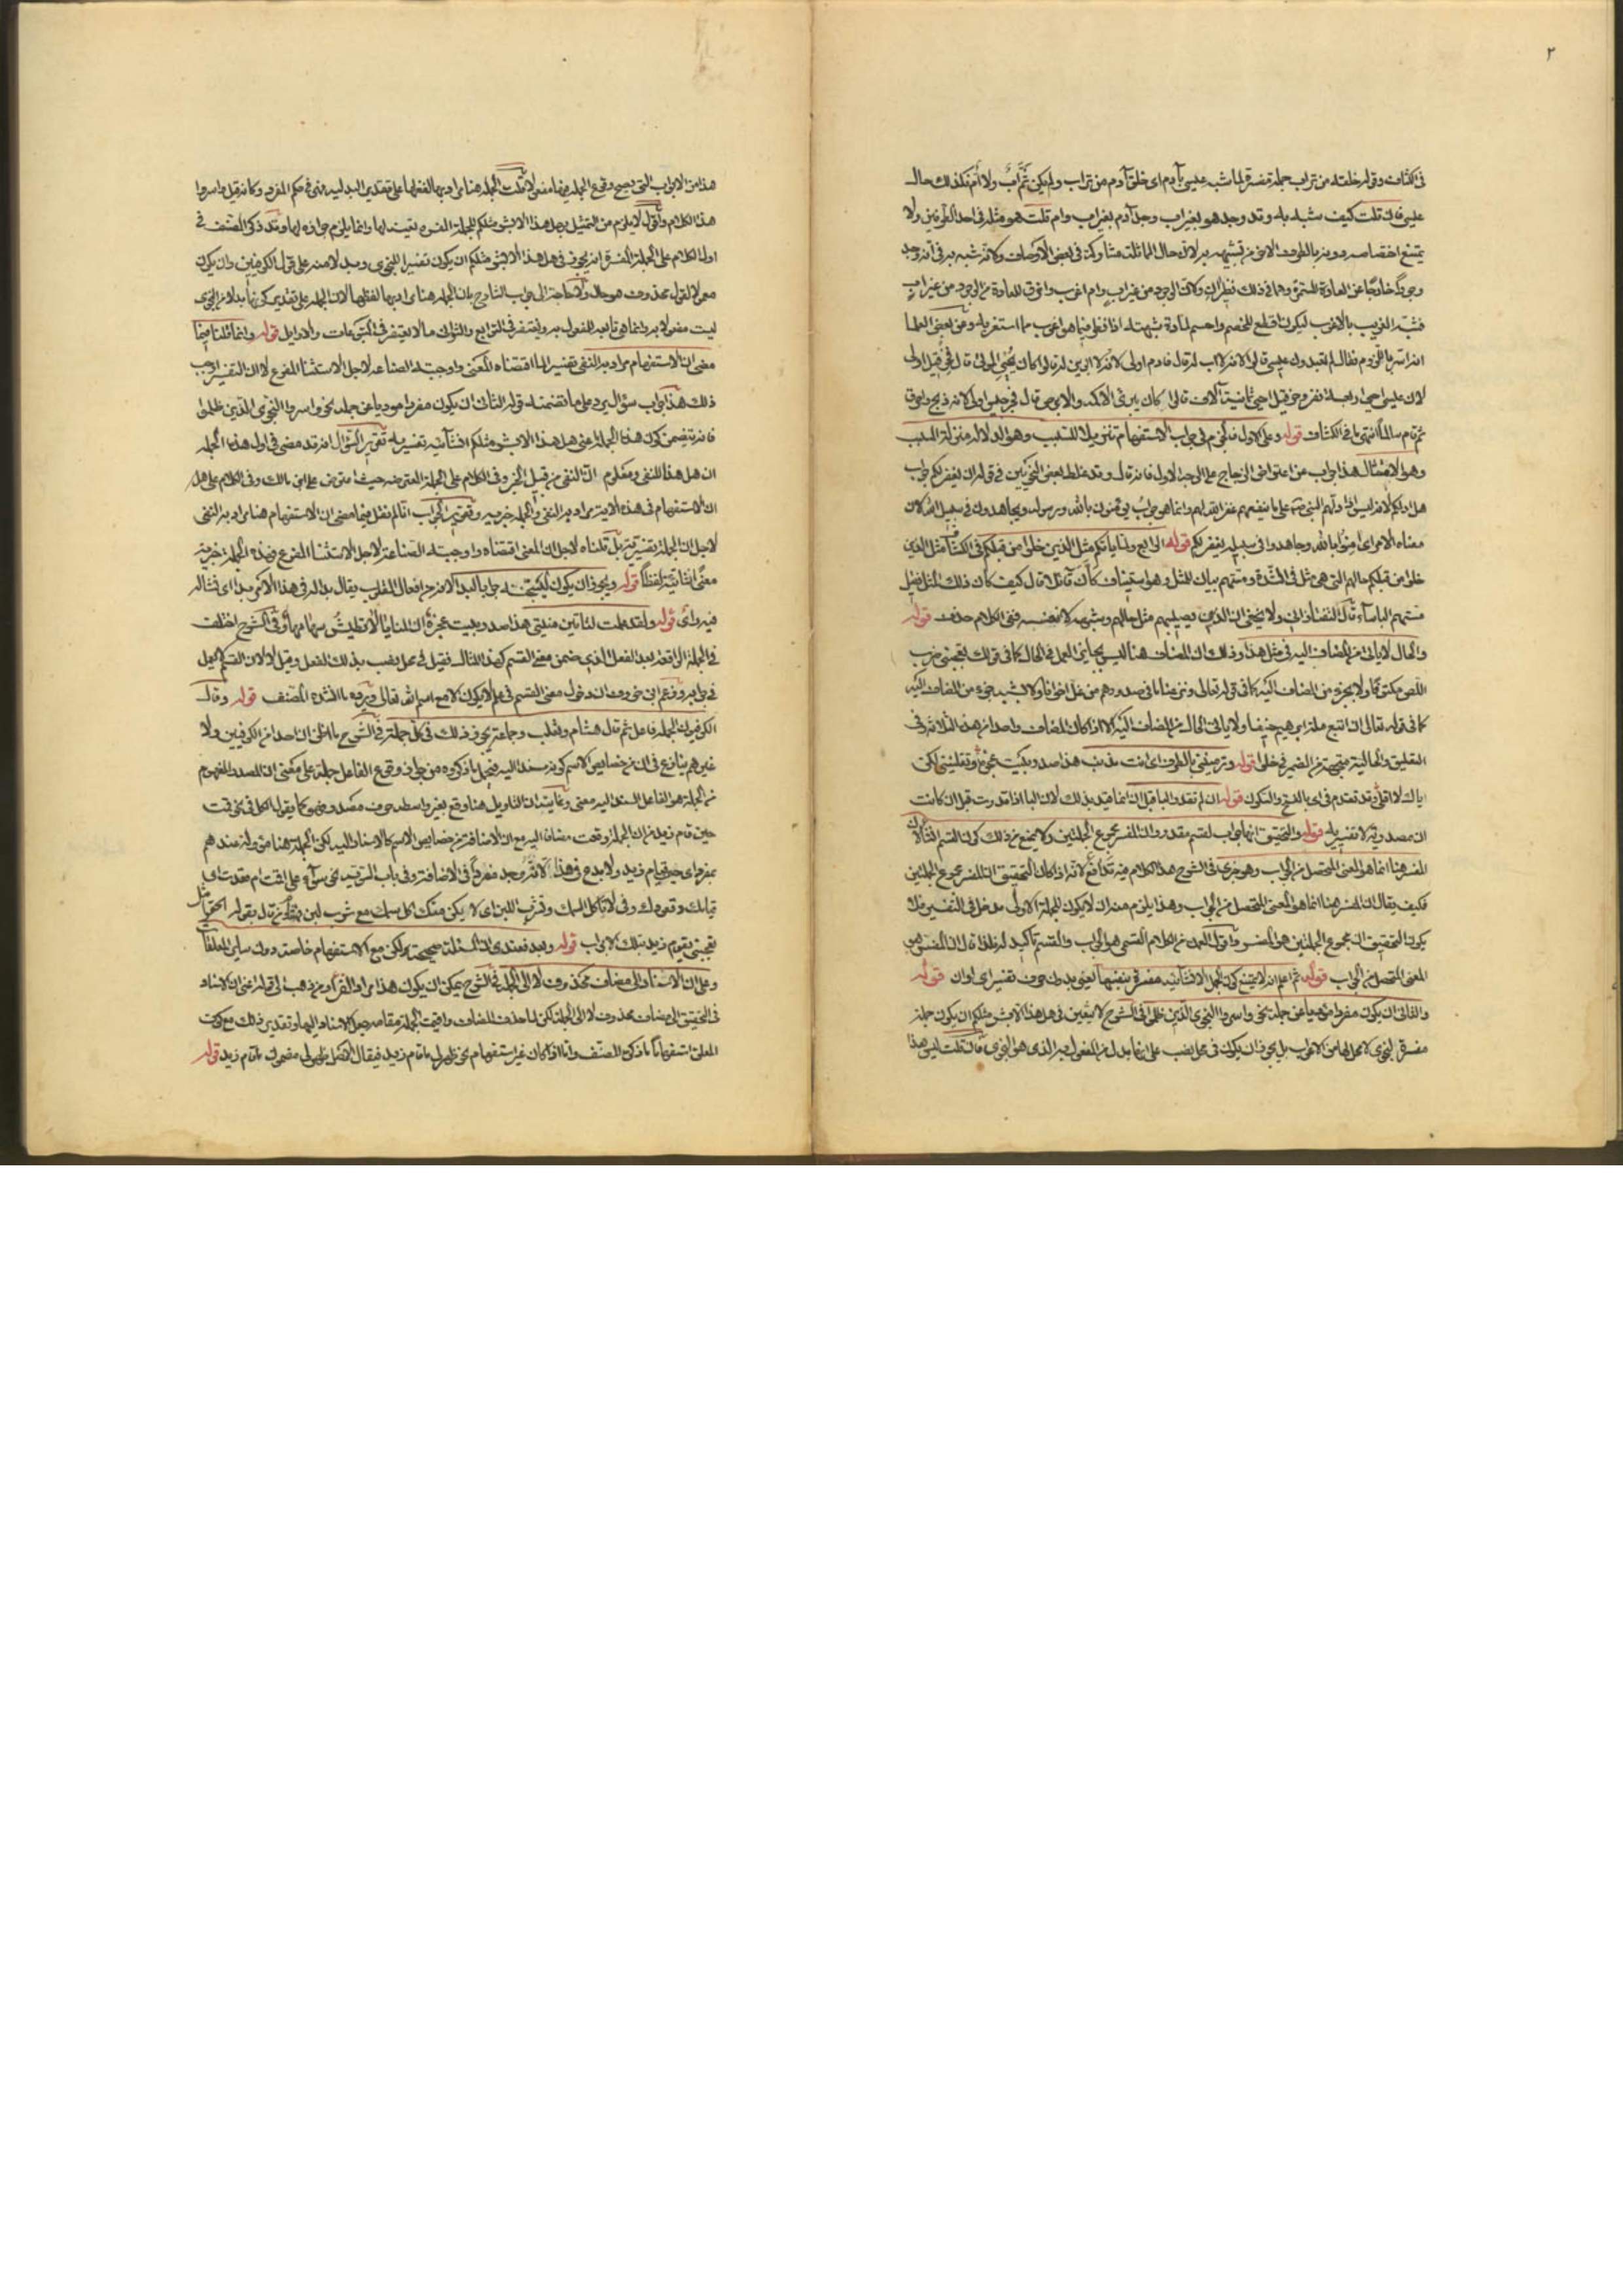 ٢
في الكشاف وقوله خلقه من تراب جملة مفسرة لما شبه عيسى بآدم اى خلق آدم من تراب ولم يكن ثم اب ولا ام فكذلك حال
عيسى فان قلت كيف شبه به وقد وجد هو بغير اب ووجد آدم بغير اب وام قلت هو مثله في احد الطرفين ولا
يمنع اختصاصه دونه بالطرف الاخر من تشبيهه به لان حال المماثلة مشاركة في بعض الاوصاف ولانه شبه به في انه وجد
وجودا خارجا عن العادة المستمرة وهما في ذلك نظيران ولان الوجود من غير اب وام اغرب واخرق للعادة من الوجود من غير اب
فشبه الغريب بالاغرب ليكون اقطع للخصم واحسم لمادة شبهته اذا نظر فيما هو اغرب مما استغربه وعن بعض العلما
انه اسر بالروم فقال لم تعبدون عيسى قالوا لانه لا اب له قال فآدم اولى لانه لا ابوين له قالوا كان يحيى الموتى قال فحزقيل اولى
لان عيسى احيى اربعة نفر وحزقيل احيى ثمانية آلاف قالوا كان يبرئ الاكمه والابرص قال فجرجيس اولى لانه ذبح واحرق
ثم قام سالما انتهى ما في الكشاف قوله وعلى الاول فالجزم في جواب الاستفهام تنزيلا للسبب وهو الدلالة منزلة المسبب
وهو الامتثال هذا جواب عن اعتراض الزجاج على الوجه الاول فانه قال وقد غلط بعض النحويين في قوله ان يغفر لكم جواب
هل ادلكم لانه ليس اذا دلهم النبي صلعم على ما ينفعهم غفر الله لهم وانما هو جواب تؤمنون بالله ورسوله وتجاهدون في سبيل الله لان
معناه الامر اى آمنوا بالله وجاهدوا في سبيله يغفر لكم قوله الرابع ولما ياتكم مثل الذين خلوا من قبلكم في الكشاف مثل الذين
خلوا من قبلكم حالهم التي هي مثل في الشدة ومستهم بيان للمثل وهو استيناف كأن قائلا قال كيف كان ذلك المثل فقيل
مستهم الباسآء قال التفتازاني ولا يخفى ان الذين يصيبهم مثل حالهم وشبهه لا نفسه ففي الكلام حذف قوله
والحال لا ياتى من المضاف اليه في مثل هذا وذلك ان المضاف هنا ليس بجايز العمل في الحال كما في قولك يعجبني ضرب
اللص مكتوفا ولا بجزء من المضاف اليه كما في قوله تعالى ونزعنا ما في صدورهم من غل اخوانا ولا شبيه جزء من المضاف اليه
كما في قوله تعالى ان اتبع ملة ابرهيم حنيفا ولا ياتى الحال من المضاف اليه الا اذا كان المضاف واحدا من هذه الثلاثة وفي
التعليق والحالية متجهة من الضمير في خلوا قوله وترمينني بالطرف اى انت مذنب هذا صدر بيت عجزه وتقلينني لكن
اياك لا اقلى وقد تقدم في اى بالفتح والسكون قوله ان لم تقدر الباء قبل ان انما قيد بذلك لان البا اذا قدرت قبل ان كانت
ان مصدرية لا تفسيرية قوله والتحقيق انها جواب لقسم مقدر وان المفسر مجموع الجملتين ولا يمنع من ذلك كون القسم انشاء لان
المفسر هنا انما هو المعنى المتحصل من الجواب وهو خبرى في الشرح هذا الكلام فيه تدافع لانه اذا كان التحقيق ان المفسر مجموع الجملتين
فكيف يقال ان المفسر هنا انما هو المعنى المتحصل من الجواب وهذا يلزم منه ان لا يكون للجملة الاولى مدخل في التفسير فلا
يكون التحقيق ان مجموع الجملتين هو المفسر واقول العمدة من الكلام القسمى هو الجواب والقسم تاكيد له فلذا قال ان المفسر هو
المعنى المتحصل من الجواب قوله ثم اعلم انه لا يمتنع كون الجمل الانشائية مفسرة بنفسها يعنى بدون حرف تفسير اى او ان قوله
والثانى ان يكون مفردا مؤديا عن جملة نحو واسروا النجوى الذين ظلموا في الشرح لا يتعين في هل هذا الا بشر مثلكم ان يكون جملة
مفسرة للنجوى لا محل لها من الاعراب بل يجوز ان يكون في محل نصب على انها بدل من المفعول به الذى هو النجوى فان قلت ليس هذا
هذا من الابواب التي يصح وقوع الجملة فيها مفعولا قلت الجملة هنا مراد بها لفظها على تقدير البدلية فهى في حكم المفرد وكانه قيل واسروا
هذا الكلام واقول لا يلزم من التمثيل بهل هذا الا بشر مثلكم للجملة المفسرة تعينه لها وانما يلزم جوازه لها وقد ذكر المصنف في
اول الكلام على الجملة المفسرة انه يجوز في هل هذا الا بشر مثلكم ان يكون تفسيرا للنجوى وبدلا منه على قول الكوفيين وان يكون
معمولا لقول محذوف هو حال ولا حاجة الى جواب الشارح بان الجملة هنا مراد بها لفظها لان الجملة على تقدير كونها بدلا من النجوى
ليست مفعولا به وانما هى تابعة للمفعول به ويغتفر في التوابع والثوانى ما لا يغتفر في المتبوعات والاوايل قوله وانما قلنا فيما
مضى ان الاستفهام مراد به النفى تفسيرا لما اقتضاه المعنى واوجبته الصناعة لاجل الاستثنا المفرغ لا ان التفسير اوجب
ذلك هذا جواب سؤال يرد على ما تضمنه قوله الثانى ان يكون مفردا موديا عن جملة نحو واسروا النجوى الذين ظلموا
فانه تضمن كون هذه الجملة اعنى هل هذا الا بشر مثلكم انشآئية تفسيرية تقرير السؤال انه قد مضى في اول هذه الجملة
ان هل هنا للنفى ومعلوم ان النفى من قبيل الخبر وفي الكلام على الجملة المعترضة حيث اعترض على ابن مالك وفي الكلام على هل
ان الاستفهام في هذه الاية مراد به النفى والجملة خبرية وتقرير الجواب انا لم نقل فيما مضى ان الاستفهام هنا مراد به النفى
لاجل ان الجملة تفسيرية بل قلناه لاجل ان المعنى اقتضاه واوجبته الصناعة لاجل الاستثنا المفرغ فهذه الجملة خبرية
معنى انشائية لفظا قوله ويجوز ان يكون ليسجننه جوابا لبدا لانه من افعال القلوب يقال بدا له في هذا الامر بدا اى نشا له
فيه راى قوله ولقد علمت لتاتين منيتى هذا صدر بيت عجزه ان المنايا لا تطيش سهامها وفي الشرح اختلف
في الجملة الواقعة بعد الفعل الذى ضمن معنى القسم كهذا المثال فقيل في محل نصب بذلك الفعل وقيل لا لان القسم لا يعمل
في جوابه وزعم ابن خروف ان دخول معنى القسم في علم لا يكون الا مع اسم الله تعالى ويرده ما انشده المصنف قوله وقال
الكوفيون الجملة فاعل ثم قال هشام وثعلب وجماعة يجوز ذلك في كل جملة في الشرح ما اظن ان احدا من الكوفيين ولا
غيرهم ينازع في ان من خصايص الاسم كونه مسندا اليه فيحمل ما ذكروه من جواز وقوع الفاعل جملة على معنى ان المصدر المفهوم
من الجملة هو الفاعل المسند اليه معنى وغايته ان التاويل هنا وقع بغير واسطة حرف مصدرى وهو كما يقول الكل في نحو قمت
حين قام زيد من ان الجملة وقعت مضافا اليه مع ان الاضافة من خصايص الاسم كالاسناد اليه لكن الجملة هنا مؤولة عندهم
بمفرد اى حين قيام زيد ولا بدع في هذا لانه وجد مفردا في الاضافة وفي باب التسوية نحو سوآء على اقمت ام قعدت اى
قيامك وقعودك وفي لا تاكل السمك وتشرب اللبن اى لا يكن منك اكل سمك مع شرب لبن
يعجبنى يقوم زيد بتلك الابواب قوله وبعد فعندى ان المسئلة صحيحة ولكن مع الاستفهام خاصة دون ساير المعلقات
وعلى ان الاسناد الى مضاف محذوف لا الى الجملة في الشرح يمكن ان يكون هذا مراد الفرآء ومن ذهب الى قوله اعنى ان الاسناد
في الحقيقة الى مضاف محذوف لا الى الجملة لكن لما حذف المضاف واقيمت الجملة مقامه جعل الاسناد اليها وتقدير ذلك مع كون
المعلق استفهاما ما ذكره المصنف واما اذا كان غير استفهام نحو ظهر لى ما قام زيد فيقال الاصل ظهر لى مضمون ما قام زيد قوله